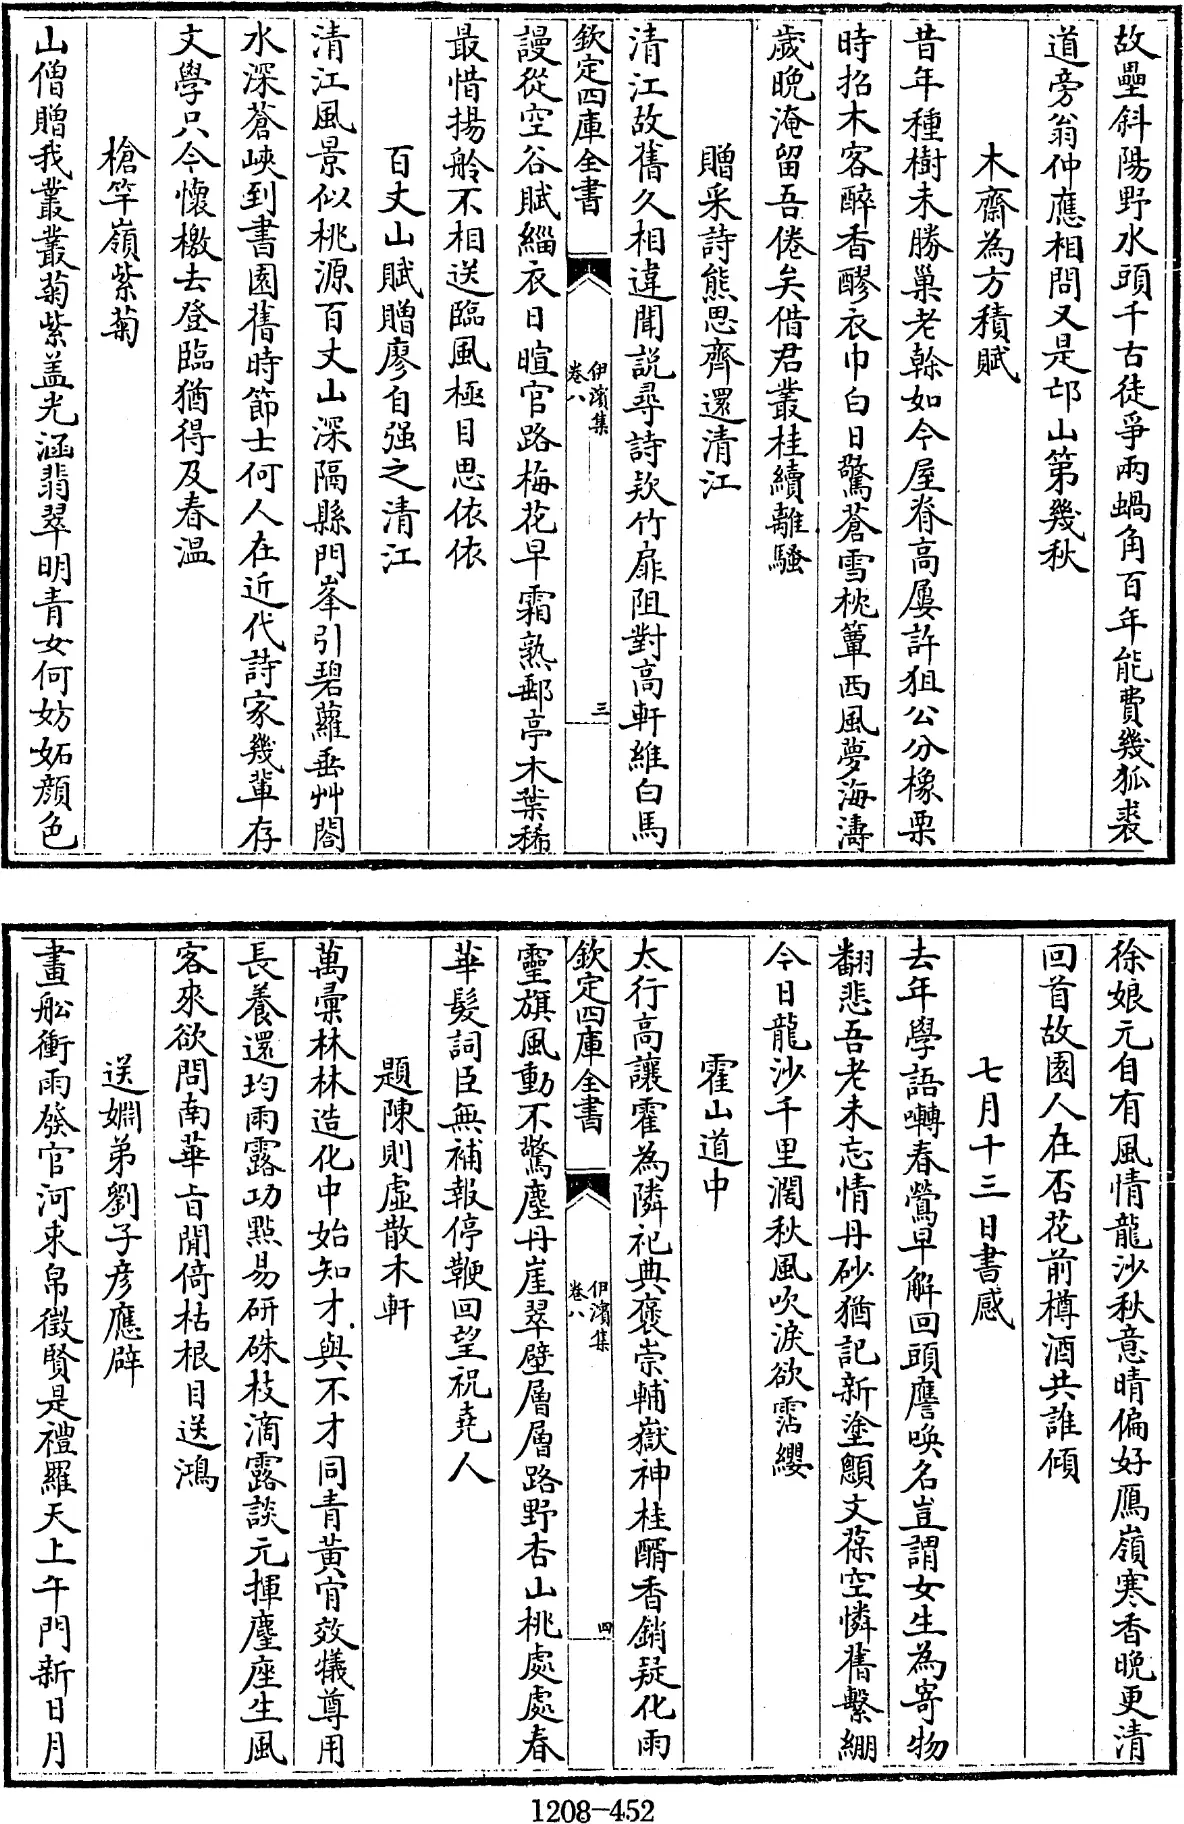 故壘斜陽野水頭千古徒爭兩蝸角百年能費幾狐裘
道旁翁仲應相問又是邙山第幾秋
木齋為方積賦
昔年種樹未勝巢老榦如今屋脊高屢許狙公分橡栗
時招木客醉香醪衣巾白日驚蒼雪枕簟西風夢海濤
歲晚淹留吾倦矣借君叢桂續離騷
贈采詩熊思齊還清江
清江故舊久相違聞說尋詩款竹扉阻對高軒維白馬
欽定四庫全書
伊濱集
卷八
三
謾從空谷賦緇衣日暄官路梅花早霜熟郵亭木葉稀
最惜揚舲不相送臨風極目思依依
百丈山賦贈廖自强之清江
清江風景似桃源百丈山深隔縣門峯引碧蘿垂艸閣
水深蒼峽到書園舊時節士何人在近代詩家幾輩存
文學只今懷檄去登臨猶得及春溫
槍竿嶺紫菊
山僧贈我叢叢菊紫盖光涵翡翠明青女何妨妬顏色
徐娘元自有風情龍沙秋意晴偏好鴈嶺寒香晚更清
回首故園人在否花前樽酒共誰傾
七月十三日書感
去年學語囀春鶯早解回頭譍喚名豈謂女生為寄物
翻悲吾老未忘情丹砂猶記新塗顖文葆空憐舊繫綳
今日龍沙千里濶秋風吹淚欲霑纓
霍山道中
太行高讓霍為隣祀典褒崇輔嶽神桂醑香銷疑化雨
欽定四庫全書
伊濱集
卷八
四
靈旗風動不驚塵丹崖翠壁層層路野杏山桃處處春
華髮詞臣無補報停鞭回望祝堯人
題陳則虛散木軒
萬彚林林造化中始知才與不才同青黃肯效犧尊用
長養還均雨露功點易研硃枝滴露談元揮麈座生風
客來欲問南華旨閒倚枯根目送鴻
送嫻弟劉子彥應辟
畫舩衝雨發官河束帛徵賢是禮羅天上午門新日月
1208-452